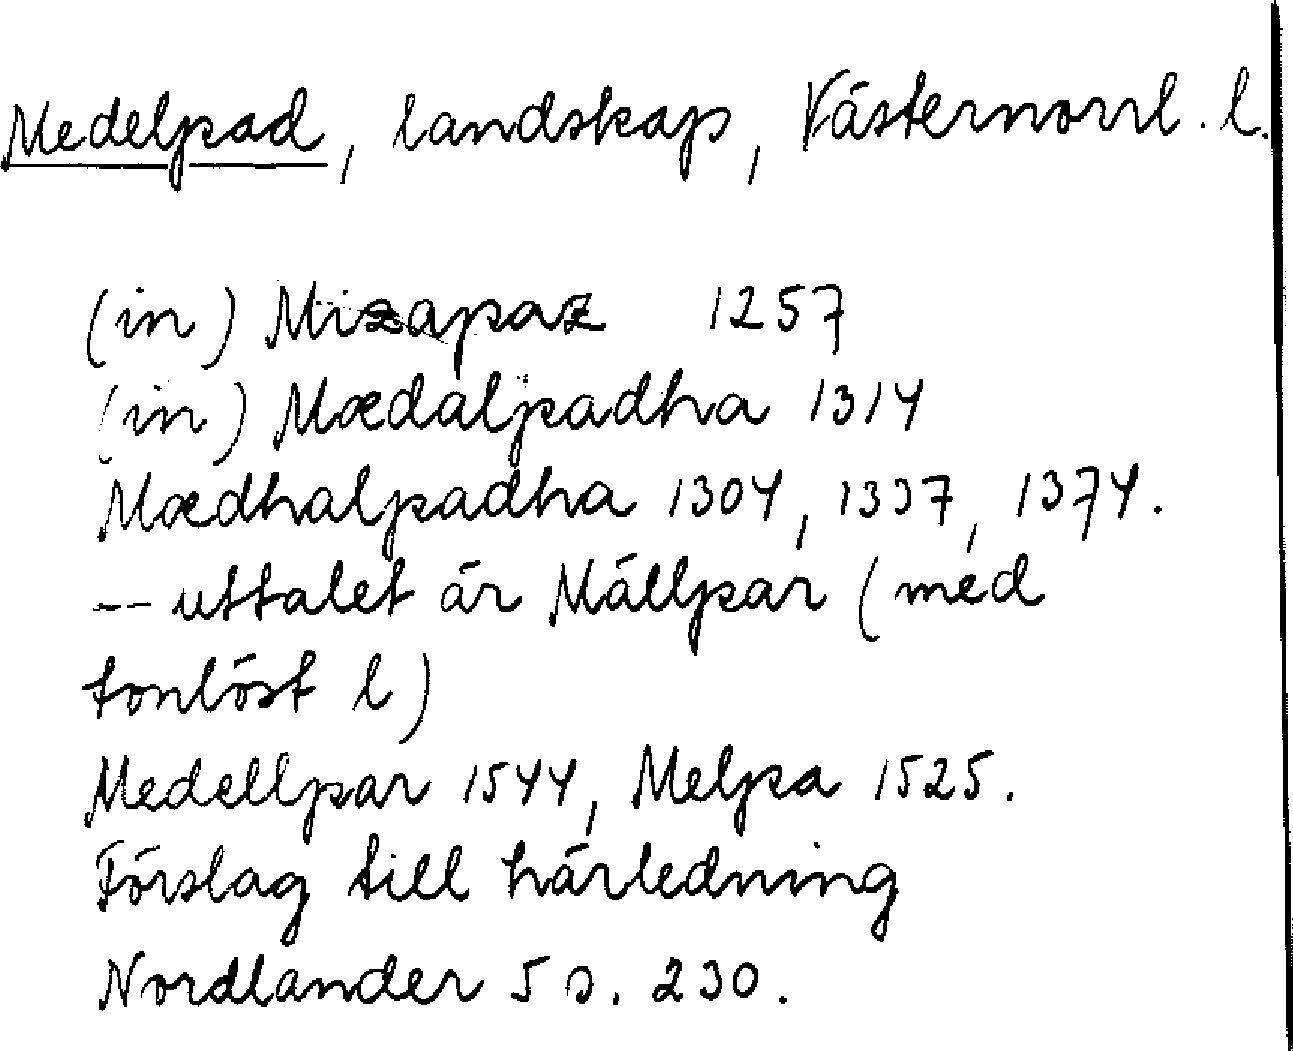 Medelpad, landskap, Västernorrl. l.
(in) Mizapaz 1257
(in) Mædalpadha 1314
Mædhalpadha 1304, 1337, 1374.
-- uttalet är Mällpar (med
tonlöst l)
Medellpar 1544, Melpa 1525.
Förslag till härledning
Nordlander 5 s. 230.